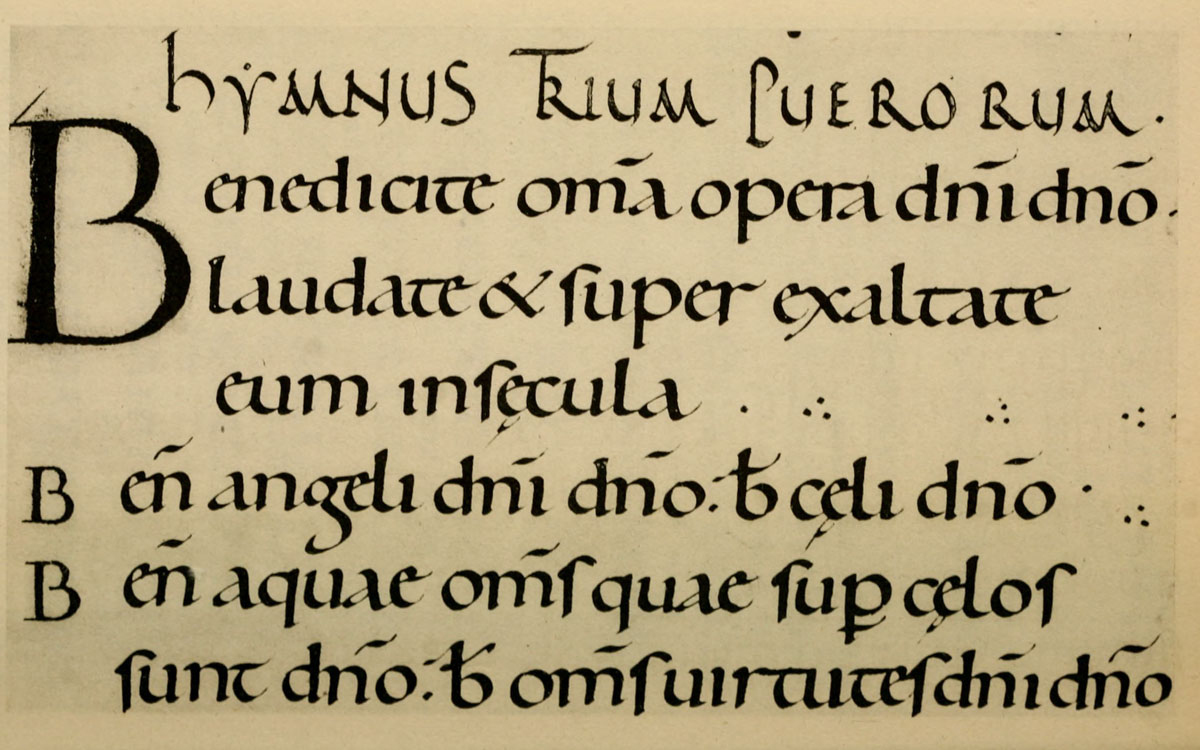 hYMNUS TRIUM PUERORUM.
Benedicite om̄a opera dn̄i dn̄o.
laudate & ſuper exaltate
eum inſęcula .
Ben̄ angeli dn̄i dn̄o:b̄ cęli dn̄o .
Ben̄ aquae om̄ſ quae ſuꝑ cęloſ
ſunt dn̄o:b̄ om̄ſ uirtuteſ dn̄i dn̄o